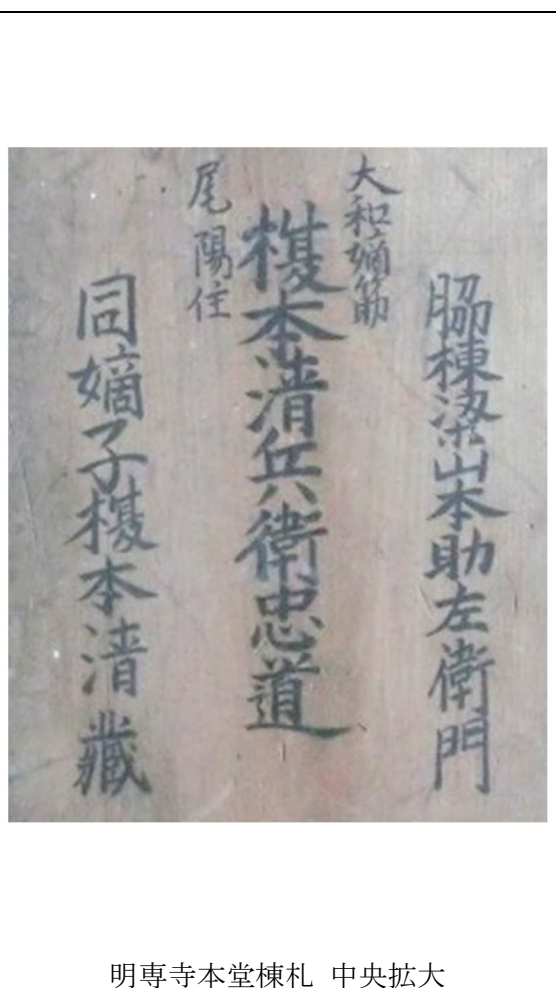 脇棟梁山本助左衛門
大和嫡筋
榎本清兵衛忠道
尾陽住
同嫡子榎本清藏
明専寺本堂棟札 中央拡大